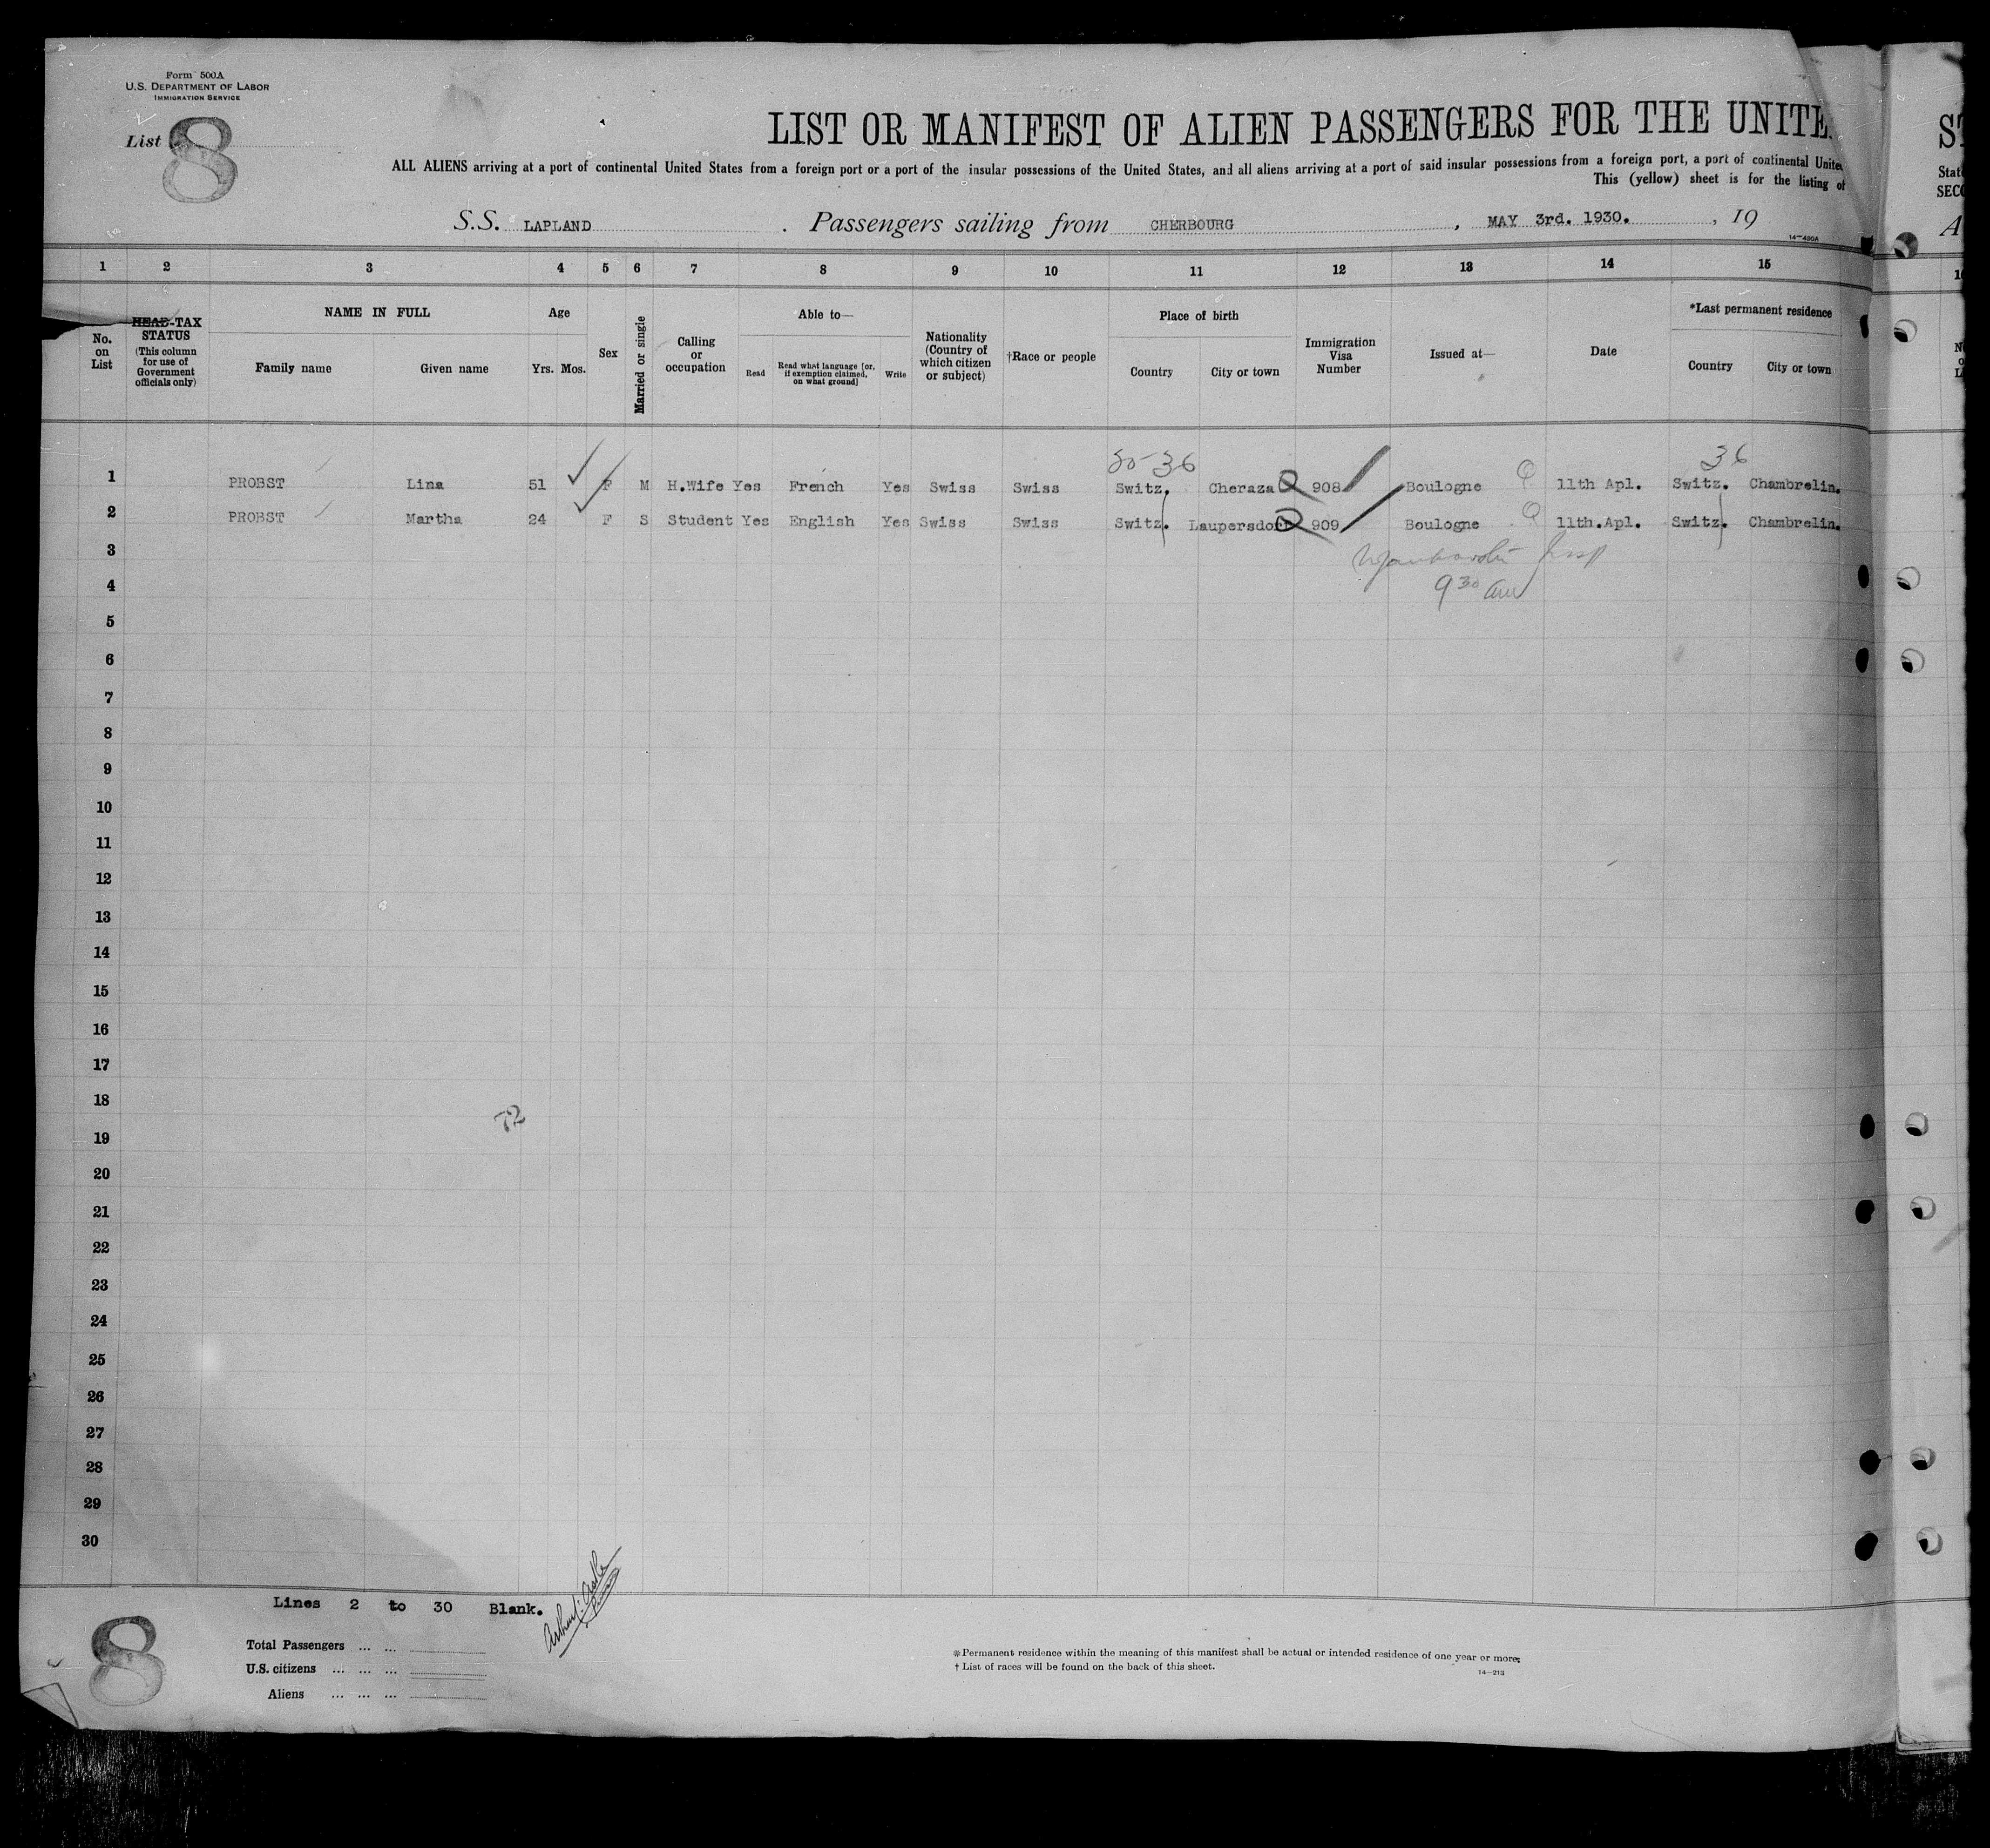 Form 500A
U.S. DEPARTMENT OF LABOR
IMMIGRATION SERVICE
List 8
LIST OR MANIFEST OF ALIEN PASSENGERS FOR THE UNITE
ALL ALIENS arriving at a port of continental United States from a foreign port or a port of the insular possessions of the United States, and all aliens arriving at a port of said insular possessions from a foreign port, a port of continental Unite
This (yellow) sheet is for the listing of
S.S. LAPLAND . Passengers sailing from CHERBOURG , MAY 3rd. 1930. , 19
14—490A
1 2 3 4 5 6 7 8 9 10 11 12 13 14 15
No. on List
HEAD-TAX STATUS (This column for use of Government officials only)
NAME IN FULL
Family name Given name
Age
Yrs. Mos.
Sex
Married or single
Calling or occupation
Able to—
Read Read what language [or, if exemption claimed, on what ground] Write
Nationality (Country of which citizen or subject)
†Race or people
Place of birth
Country City or town
Immigration Visa Number
Issued at—
Date
*Last permanent residence
Country City or town
36
36
1 PROBST Lina 51 F M H.Wife Yes French Yes Swiss Swiss Switz. Cheraza 908 Boulogne 11th Apl. Switz. Chambrelin.
2 PROBST Martha 24 F S Student Yes English Yes Swiss Swiss Switz. Laupersdorf 909 Boulogne 11th.Apl. Switz. Chambrelin.
3
9 30 am
4
5
6
7
8
9
10
11
12
13
14
15
16
17
18
72
19
20
21
22
23
24
25
26
27
28
29
30
Lines 2 to 30 Blank.
8
Total Passengers ... ...
U.S. citizens ... ... ...
Aliens ... ... ...
* Permanent residence within the meaning of this manifest shall be actual or intended residence of one year or more.
† List of races will be found on the back of this sheet.
14—213
ST
Stat
SECO
A